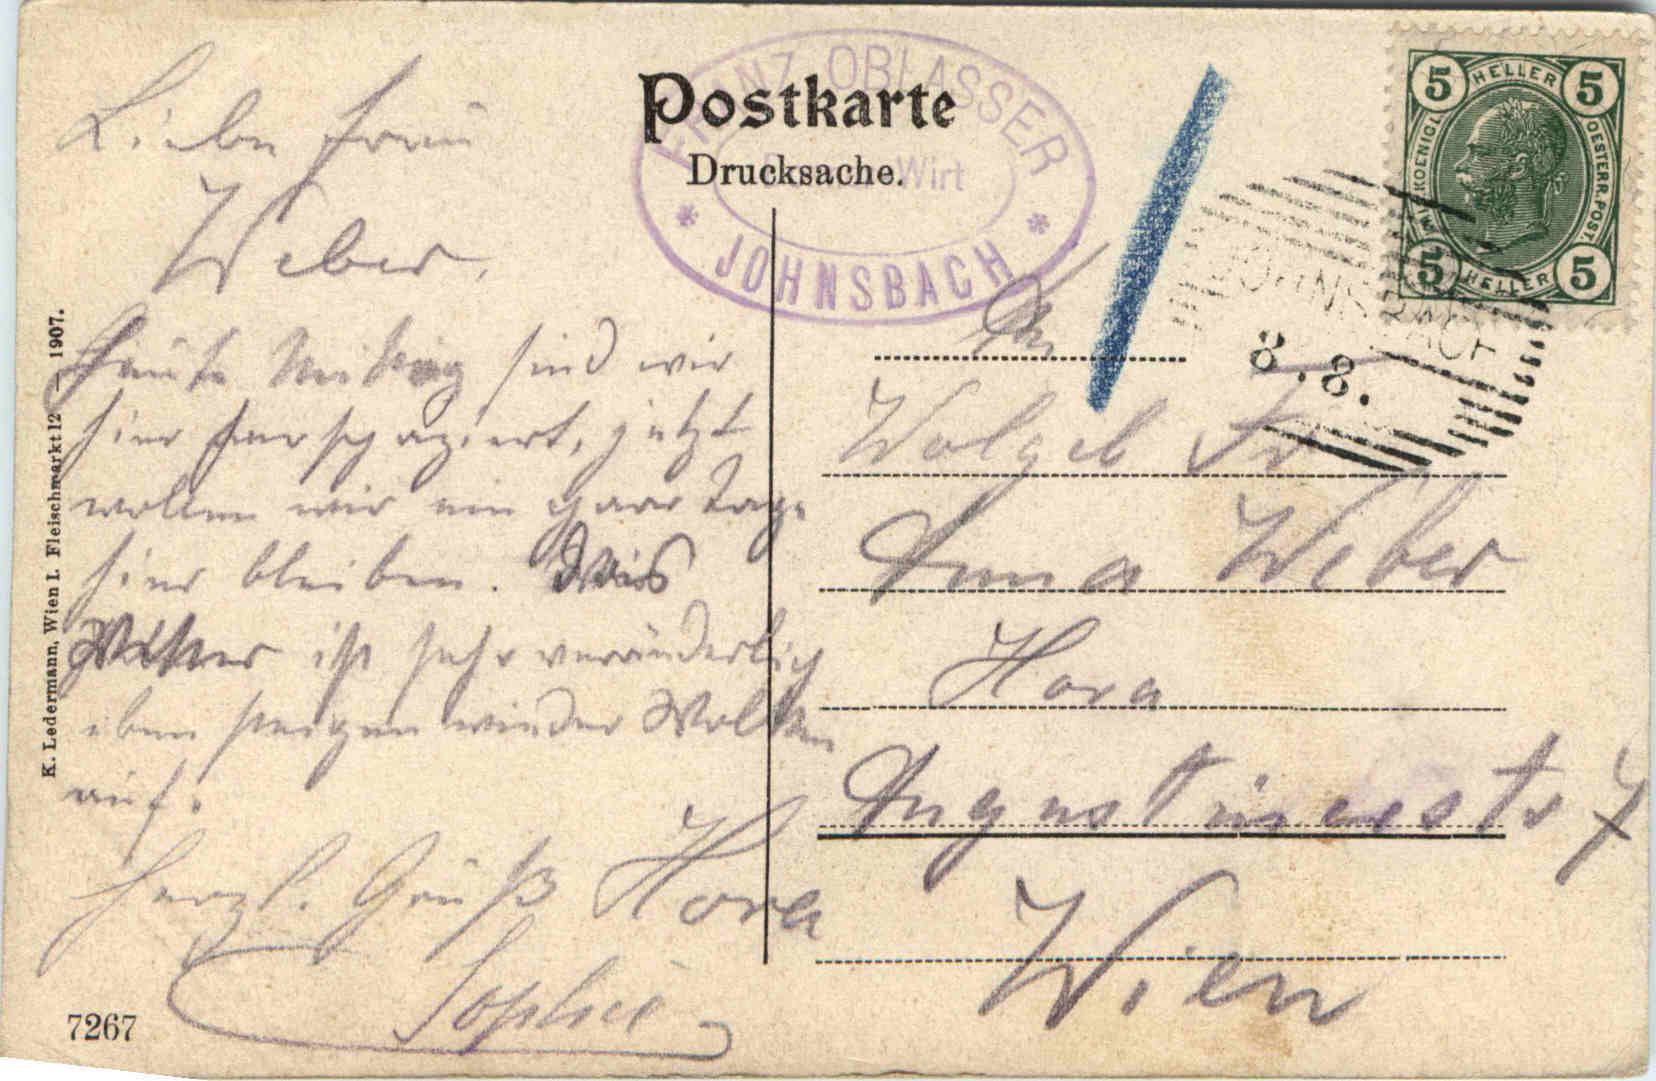 Postkarte
Drucksache.
FRANZ OBLASSER
Wirt
* JOHNSBACH *
5 HELLER 5
KAIS. KOENIGL. OESTERR. POST.
5 HELLER 5
JOHNSBACH
8.8.
Liebe Frau
Weber,
Heute Mittag sind wir
hier herspaziert, jetzt
wollen wir ein paar Tage
hier bleiben. Das
Wetter ist sehr veränderlich
eben steigen wieder Wolken
auf.
Herzl. Gruß Hora
Sophie
An
Wolgeb Fr
Anna Weber
Hora
Augustinerstr 7
Wien
K. Ledermann, Wien I. Fleischmarkt 12 — 1907.
7267